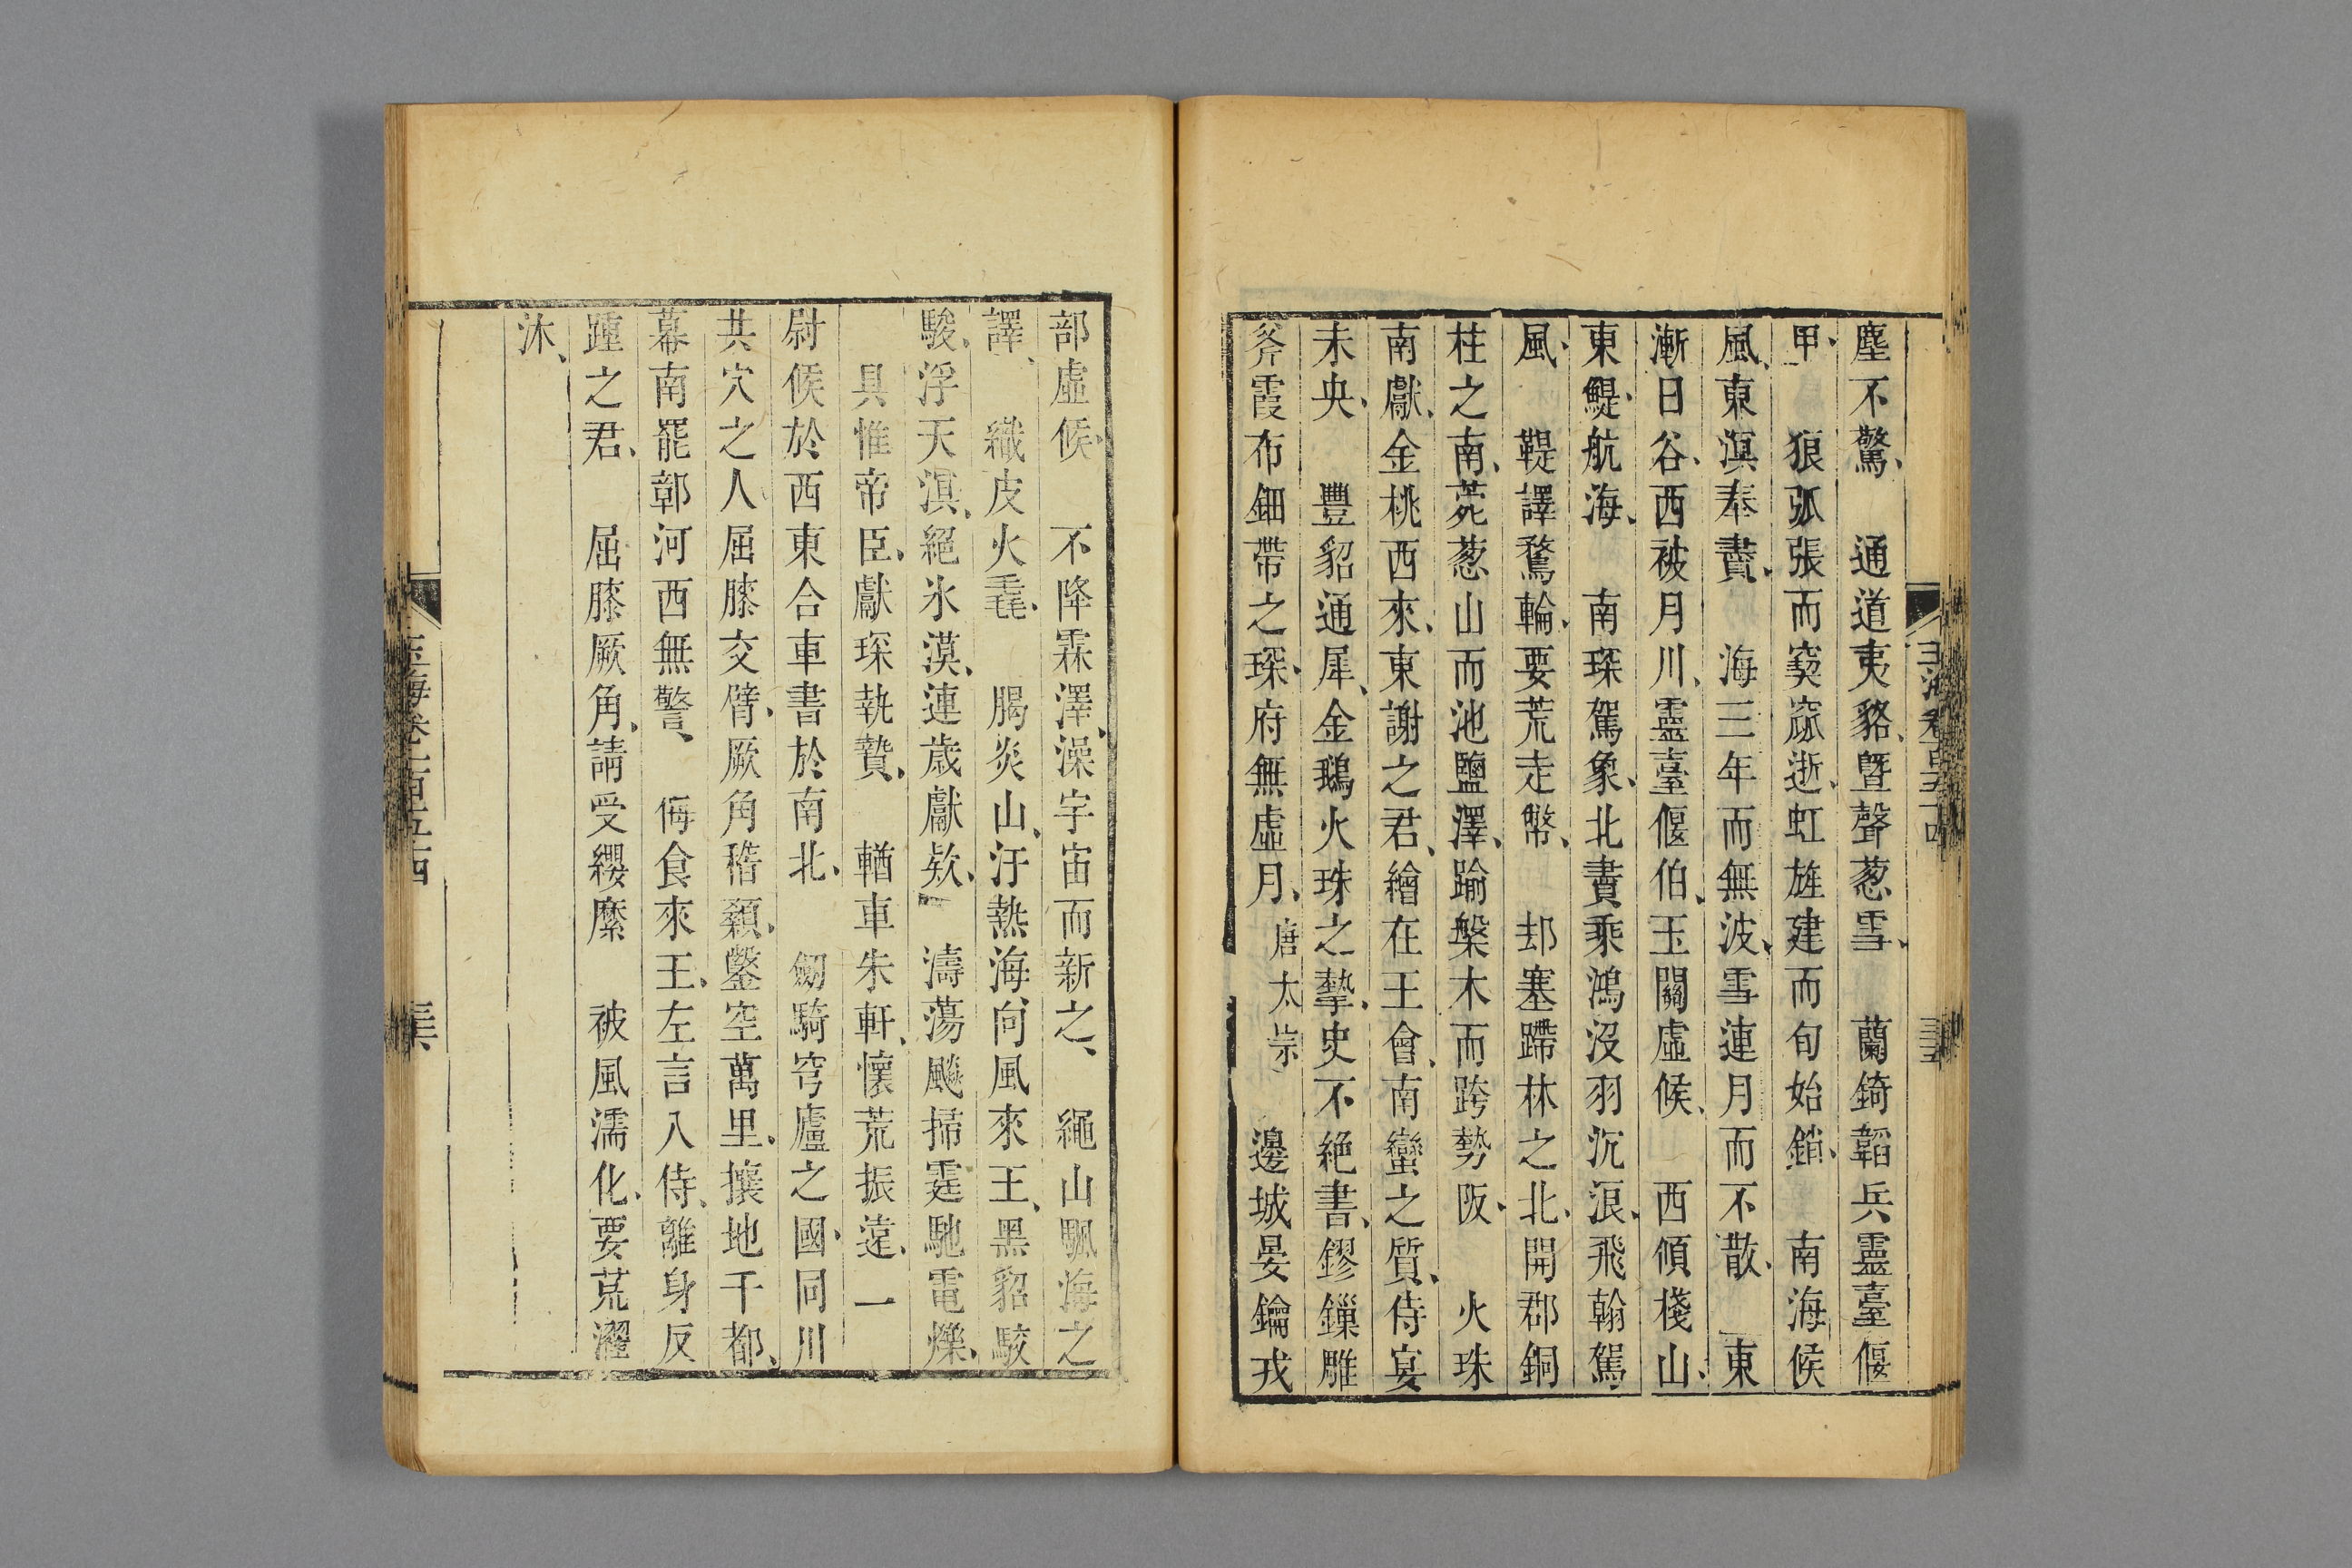 塵不驚、　通道夷貉、暨聲葱雪、　蘭錡韜兵靈臺偃
甲、　狼弧張而窫窳逝、虹旌建而旬始鎖、　南海候
風、東溟奉賮、　海三年而無波、雪連月而不散、　東
漸日谷、西被月川、靈臺偃伯、玉關虛候、　西傾棧山、
東鯷航海、　南琛駕象、北賮乘鴻沒羽沉浪、飛翰駕
風、　鞮譯騖輪、要荒走幣、　㓨塞蹛林之北、開郡銅
柱之南、菀葱山而池鹽澤、踰槃木而跨勢阪、　火珠
南獻、金桃西來、東謝之君、繪在王會、南蠻之質、侍宴
未央、　豐貂通犀、金鵝火珠之摯、史不絶書、鏐鏁雕
斧霞布鈿帶之琛、府無虛月、唐太宗　邊城晏鑰戎
玉海卷一百五十四　三五
部虛候、　不降霖澤、澡宇宙而新之、　繩山颿海之
譯、　織皮火毳、　䐶炎山、汙熱海、向風來王、黑貂駮
駿、浮天溟、絕氷漠、連歲獻欵、　濤蕩飈掃霆馳電爍、
具惟帝臣、獻琛執贄、　輶車朱軒、懷荒振遠、　一
尉候於西東合車書於南北、　劒騎穹廬之國、同川
共穴之人、屈膝交臂、厥角稽顙、鑿空萬里、攘地千都、
幕南罷鄣河西無警、　侮食來王、左言入侍、離身反
踵之君、　屈膝厥角、請受纓縻　被風濡化、要荒濯
沐、
玉海卷一百五十四